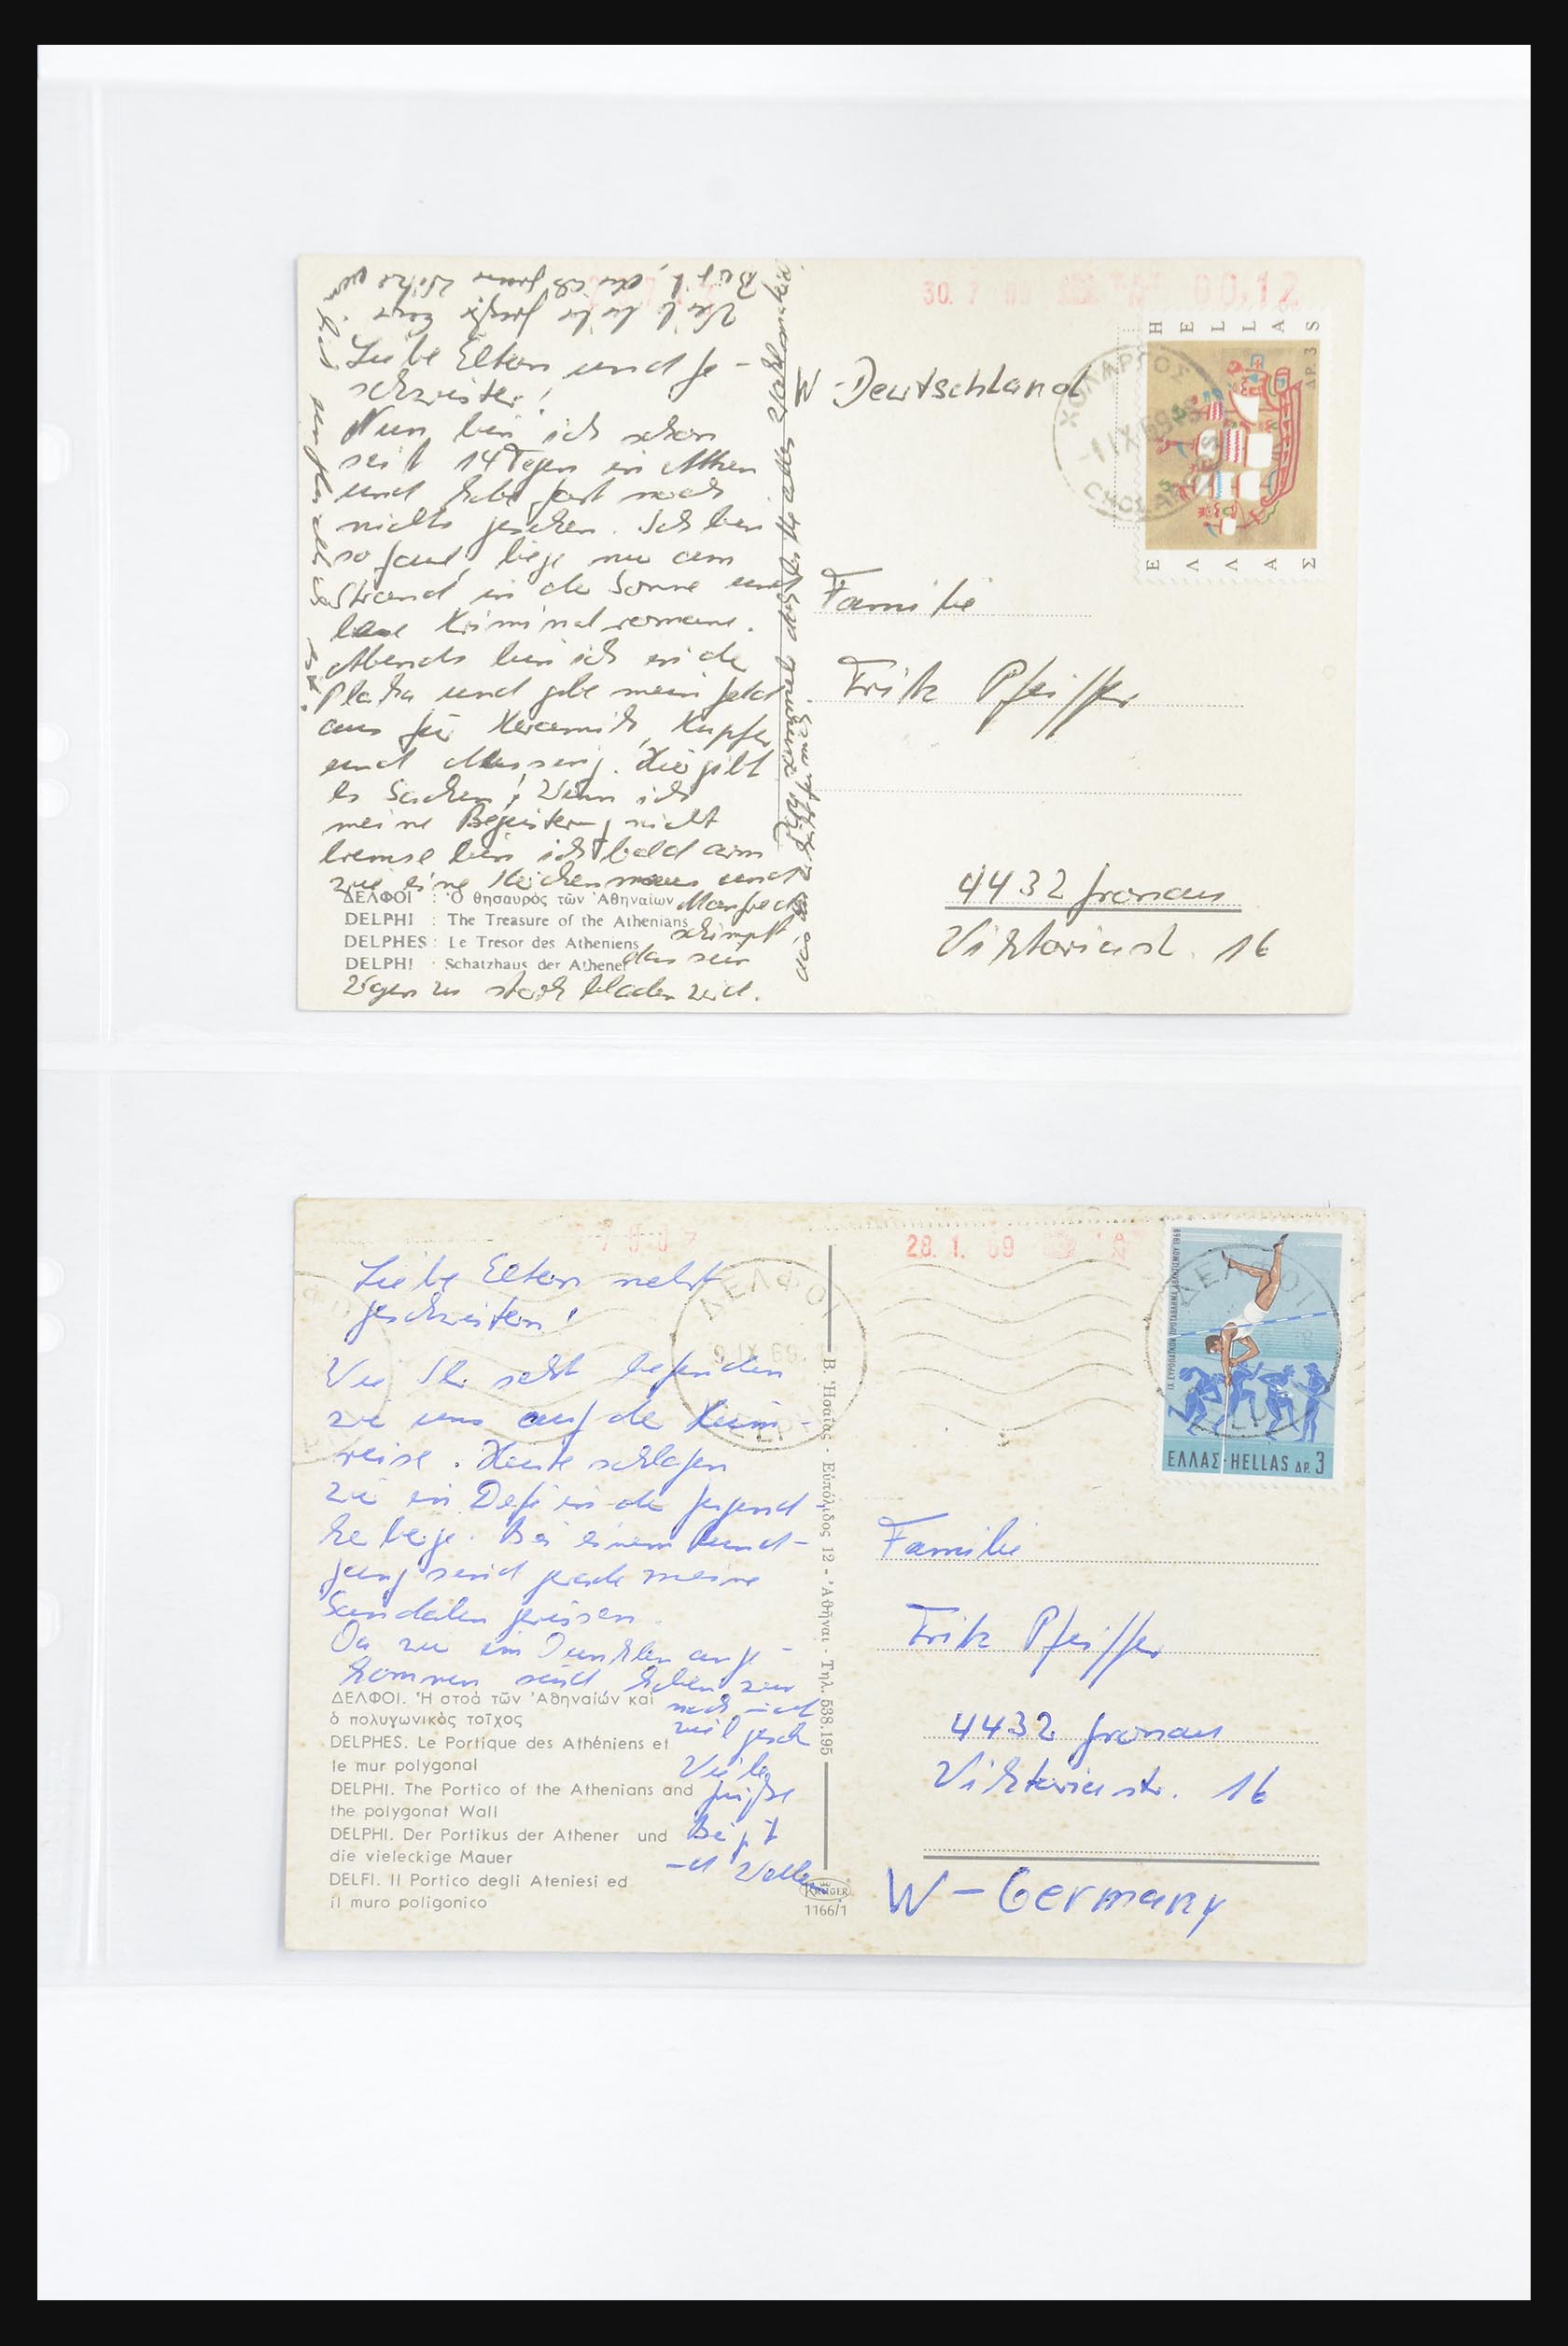 30. 7 69 00,12
HELLAS
ΔΡ. 3
ΕΛΛΑΣ
ΧΟΛΑΡΓΟΣ
IX 69
CHOLARGOS
W-Deutschland
Liebe Eltern und Ge-
schwister!
Nun bin ich schon
seit 14 Tagen in Athen
und habe fast noch
nichts gesehen. Ich bin
so faul, liege nur am
Strand in der Sonne und
lese Kriminalromane.
Abends bin ich in der
Plaka und gebe mein Geld
aus für Keramik, Kupfer
und Messing. Hier gibt
es Sachen! Wenn ich
meine Begeisterung nicht
bremse bin ich bald arm
wie eine Kirchenmaus und
Manfred
schimpft,
das sein
Wagen zu stark beladen wird.
ΔΕΛΦΟΙ : Ὁ θησαυρὸς τῶν Ἀθηναίων
DELPHI : The Treasure of the Athenians
DELPHES : Le Tresor des Atheniens
DELPHI : Schatzhaus der Athener
Familie
Fritz Pfeiffer
4432 Gronau
Viktoriast. 16
28. 1. 69
ΔΕΛΦΟΙ
IX 69
ΔΕΛΦΟΙ
IX ΕΥΡΩΠΑΪΚΟΝ ΠΡΩΤΑΘΛΗΜΑ ΑΘΛΗΤΙΣΜΟΥ 1969
ΕΛΛΑΣ·HELLAS ΔΡ. 3
Liebe Eltern nebst
Geschwistern!
Wie Ihr seht befinden
wir uns auf der Heim-
reise. Heute schlafen
wir in Delfi in der Jugend
herberge. Bei einem Rund-
gang sind gerade meine
Sandalen gerissen.
Da wir im Dunklen ange-
kommen sind haben wir
noch nicht
viel geseh
Viele
Grüße
ΔΕΛΦΟΙ. Ἡ στοὰ τῶν Ἀθηναίων καὶ
ὁ πολυγωνικὸς τοῖχος
DELPHES. Le Portique des Athéniens et
le mur polygonal
DELPHI. The Portico of the Athenians and
the polygonat Wall
DELPHI. Der Portikus der Athener und
die vieleckige Mauer
DELFI. Il Portico degli Ateniesi ed
il muro poligonico
Β. Ἡσαΐας - Εὐπόλιδος 12 - Ἀθῆναι - Τηλ. 538.195
KRÜGER
1166/1
Familie
Fritz Pfeiffer
4432 Gronau
Viktoriastr. 16
W-Germany